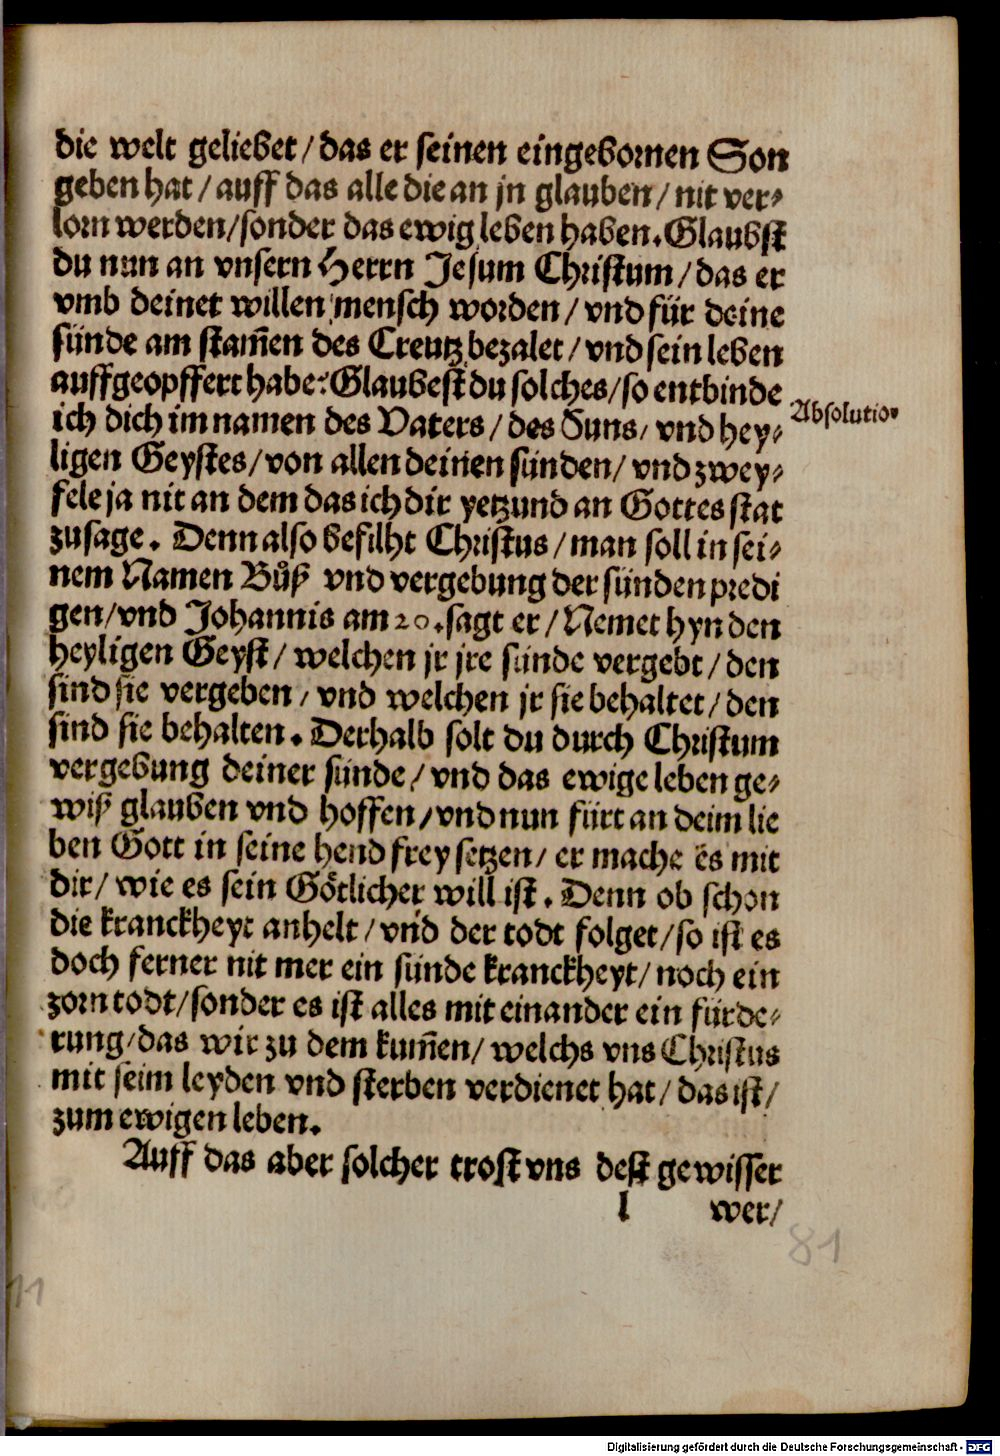 die welt geliebet / das er seinen eingebornen Son
geben hat / auff das alle die an jn glauben / nit ver-
lorn werden / sonder das ewig leben haben. Glaubst
du nun an vnsern Herrn Jesum Christum / das er
vmb deinet willen mensch worden / vnd für deine
sünde am stam̃en des Creutz bezalet / vnd sein leben
auffgeopffert habe? Glaubest du solches / so entbinde
ich dich im namen des Vaters / des Suns / vnd hey-
Absolutio.
ligen Geystes / von allen deinen sünden / vnd zwey-
fele ja nit an dem das ich dir yetzund an Gottes stat
zusage. Denn also befilht Christus / man soll in sei-
nem Namen Bůß vnd vergebung der sünden predi
gen / vnd Johannis am 20. sagt er / Nemet hyn den
heyligen Geyst / welchen jr jre sünde vergebt / den
sind sie vergeben / vnd welchen jr sie behaltet / den
sind sie behalten. Derhalb solt du durch Christum
vergebung deiner sünde / vnd das ewige leben ge-
wiß glauben vnd hoffen / vnd nun fürt an deim lie
ben Gott in seine hend frey setzen / er mache es mit
dir / wie es sein Götlicher will ist. Denn ob schon
die kranckheyt anhelt / vnd der todt folget / so ist es
doch ferner nit mer ein sünde kranckheyt / noch ein
zorn todt / sonder es ist alles mit einander ein fürde-
rung / das wir zu dem kum̃en / welchs vns Christus
mit seim leyden vnd sterben verdienet hat / das ist /
zum ewigen leben.
Auff das aber solcher trost vns dest gewisser
l wer /
81
11
Digitalisierung gefördert durch die Deutsche Forschungsgemeinschaft - DFG